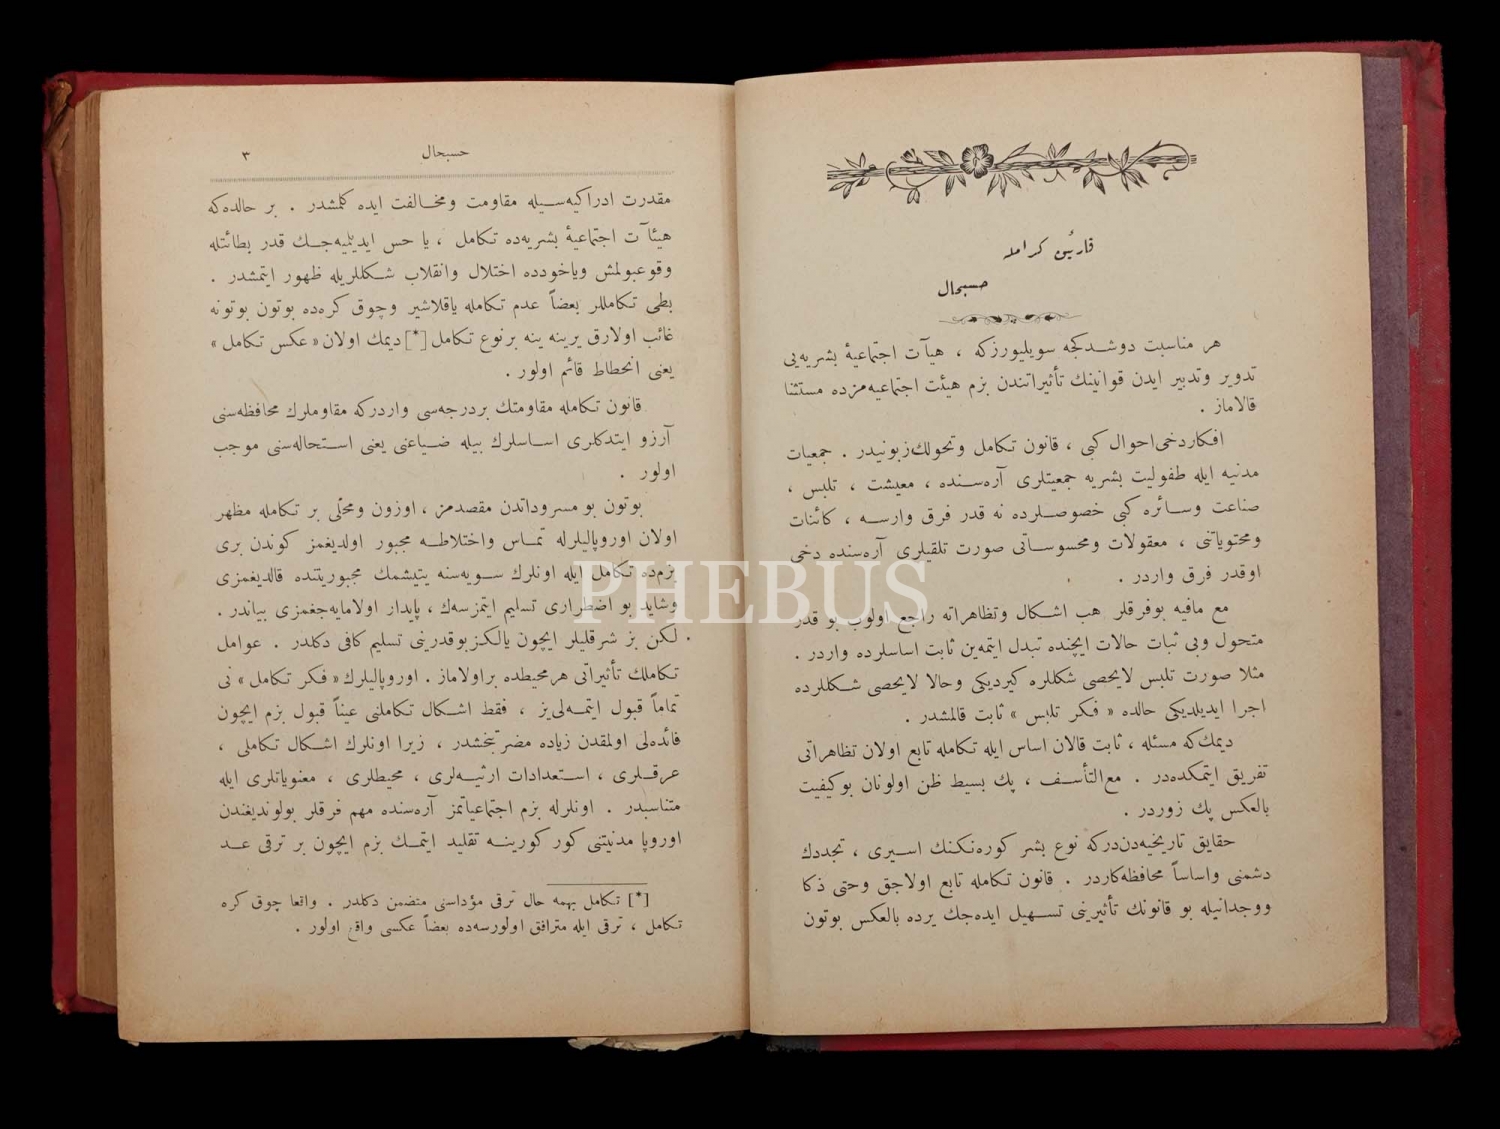 قارئین کرامله
حسبحال
هر مناسبت دوشدکجه سویلیورزکه ، هیآت اجتماعیهٔ بشریه‌یی
تدویر وتدبیر ایدن قوانینك تأثیراتندن بزم هیئت اجتماعیه‌مزده مستثنا
قالاماز .
افکاردخی احوال کبی ، قانون تکامل وتحولك زبونیدر . جمعیات
مدنیه ایله طفولیت بشریه جمعیتلری آره‌سنده ، معیشت ، تلبس ،
صناعت وسائره کبی خصوصلرده نه قدر فرق وارسه ، کائنات
ومحتویاتنی ، معقولات ومحسوساتی صورت تلقیلری آره‌سنده دخی
اوقدر فرق واردر .
مع مافیه بوفرقلر هب اشکال وتظاهراته راجع اولوب بو قدر
متحول وبی ثبات حالات ایچنده تبدل ایتمه‌ین ثابت اساسلرده واردر .
مثلا صورت تلبس لایحصی شکللره کیردیکی وحالا لایحصی شکللرده
اجرا ایدیلدیکی حالده « فکر تلبس » ثابت قالمشدر .
دیمك‌که مسئله ، ثابت قالان اساس ایله تکامله تابع اولان تظاهراتی
تفریق ایتمکده‌در . مع‌التأسف ، پك بسیط ظن اولونان بوکیفیت
بالعکس پك زوردر .
حقایق تاریخیه‌دن‌درکه نوع بشر کوره‌نکنك اسیری ، تجددك
دشمنی واساساً محافظه‌کاردر . قانون تکامله تابع اولاجق وحتی ذکا
ووجدانیله بو قانونك تأثیرینی تسهیل ایده‌جك یرده بالعکس بوتون
حسبحال ٣
مقدرت ادراکیه‌سیله مقاومت ومخالفت ایده کلمشدر . بر حالده‌که
هیئآت اجتماعیهٔ بشریه‌ده تکامل ، یا حس ایدیلمیه‌جك قدر بطائتله
وقوعبولمش ویاخودده اختلال وانقلاب شکللریله ظهور ایتمشدر .
بطی تکامللر بعضاً عدم تکامله یاقلاشیر وچوق کره‌ده بوتون بوتونه
غائب اولارق یرینه ینه برنوع تکامل [*] دیمك اولان « عکس تکامل »
یعنی انحطاط قائم اولور .
قانون تکامله مقاومتك بردرجه‌سی واردرکه مقاوملرك محافظه‌سنی
آرزو ایتدکلری اساسلرك بیله ضیاعنی یعنی استحاله‌سنی موجب
اولور .
بوتون بو مسروداتدن مقصدمز ، اوزون ومحلی بر تکامله مظهر
اولان اوروپالیلرله تماس واختلاطه مجبور اولدیغمز کوندن بری
بزم‌ده تکامل ایله اونلرك سویه‌سنه یتیشمك مجبوریتنده قالدیغمزی
وشاید بو اضطراری تسلیم ایتمزسه‌ك ، پایدار اولامایه‌جغمزی بیاندر .
لکن بز شرقلیلر ایچون یالکز بوقدرینی تسلیم کافی دکلدر . عوامل
تکاملك تأثیراتی هر محیطده براولاماز . اوروپالیلرك « فکر تکامل » نی
تماماً قبول ایتمه‌لی‌یز ، فقط اشکال تکاملنی عیناً قبول بزم ایچون
فائده‌لی اولمقدن زیاده مضرتبخشدر ، زیرا اونلرك اشکال تکاملی ،
عرقلری ، استعدادات ارثیه‌لری ، محیطلری ، معنویاتلری ایله
متناسبدر . اونلرله بزم اجتماعیاتمز آره‌سنده مهم فرقلر بولوندیغندن
اوروپا مدنیتنی کور کورینه تقلید ایتمك بزم ایچون بر ترقی عد
[*] تکامل بهمه حال ترقی مؤداسنی متضمن دکلدر . واقعا چوق کره
تکامل ، ترقی ایله مترافق اولورسه‌ده بعضاً عکسی واقع اولور .
PHEBUS